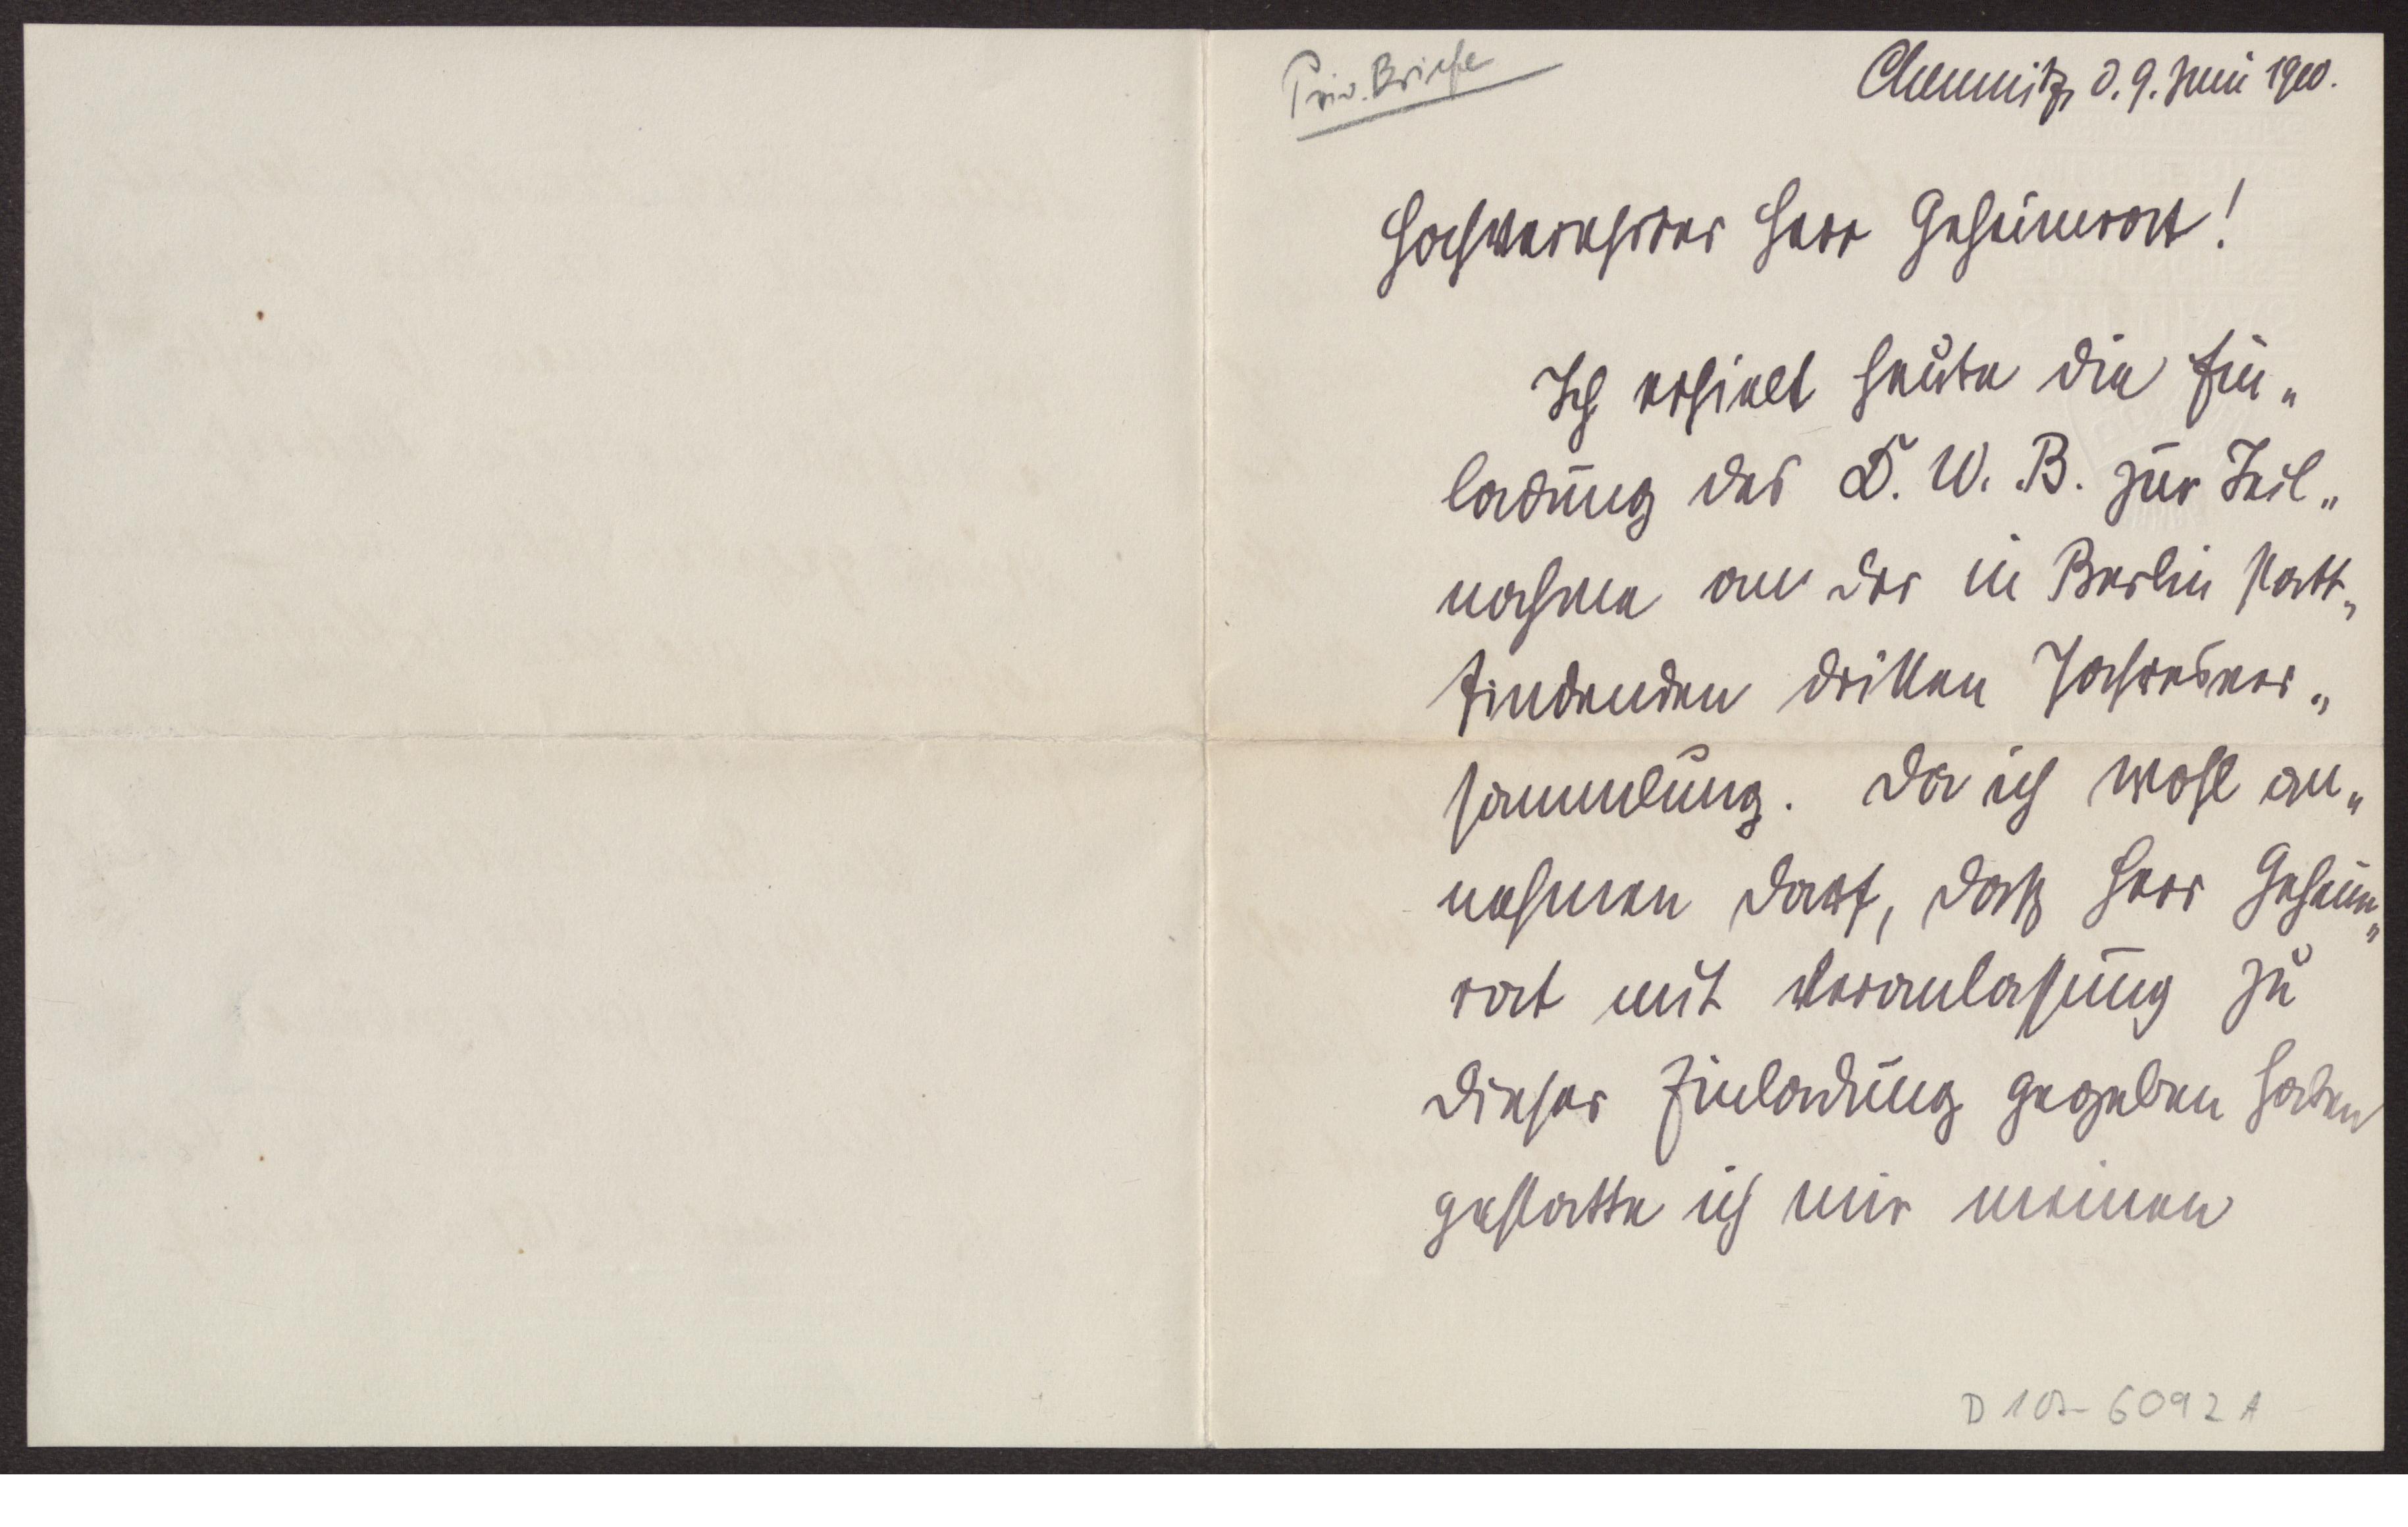 Priv. Briefe
Chemnitz, d. 9. Juni 1910.
Hochverehrter Herr Geheimrat!
Ich erhielt heute die Ein„
ladung des D. W. B. zur Teil„
nahme an der in Berlin statt„
findenden dritten Jahresver„
sammlung. Da ich wohl an„
nehmen darf, daß Herr Geheim„
rat mit Veranlassung zu
dieser Einladung gegeben haben
gestatte ich mir meinen
D 10 - 6092 A